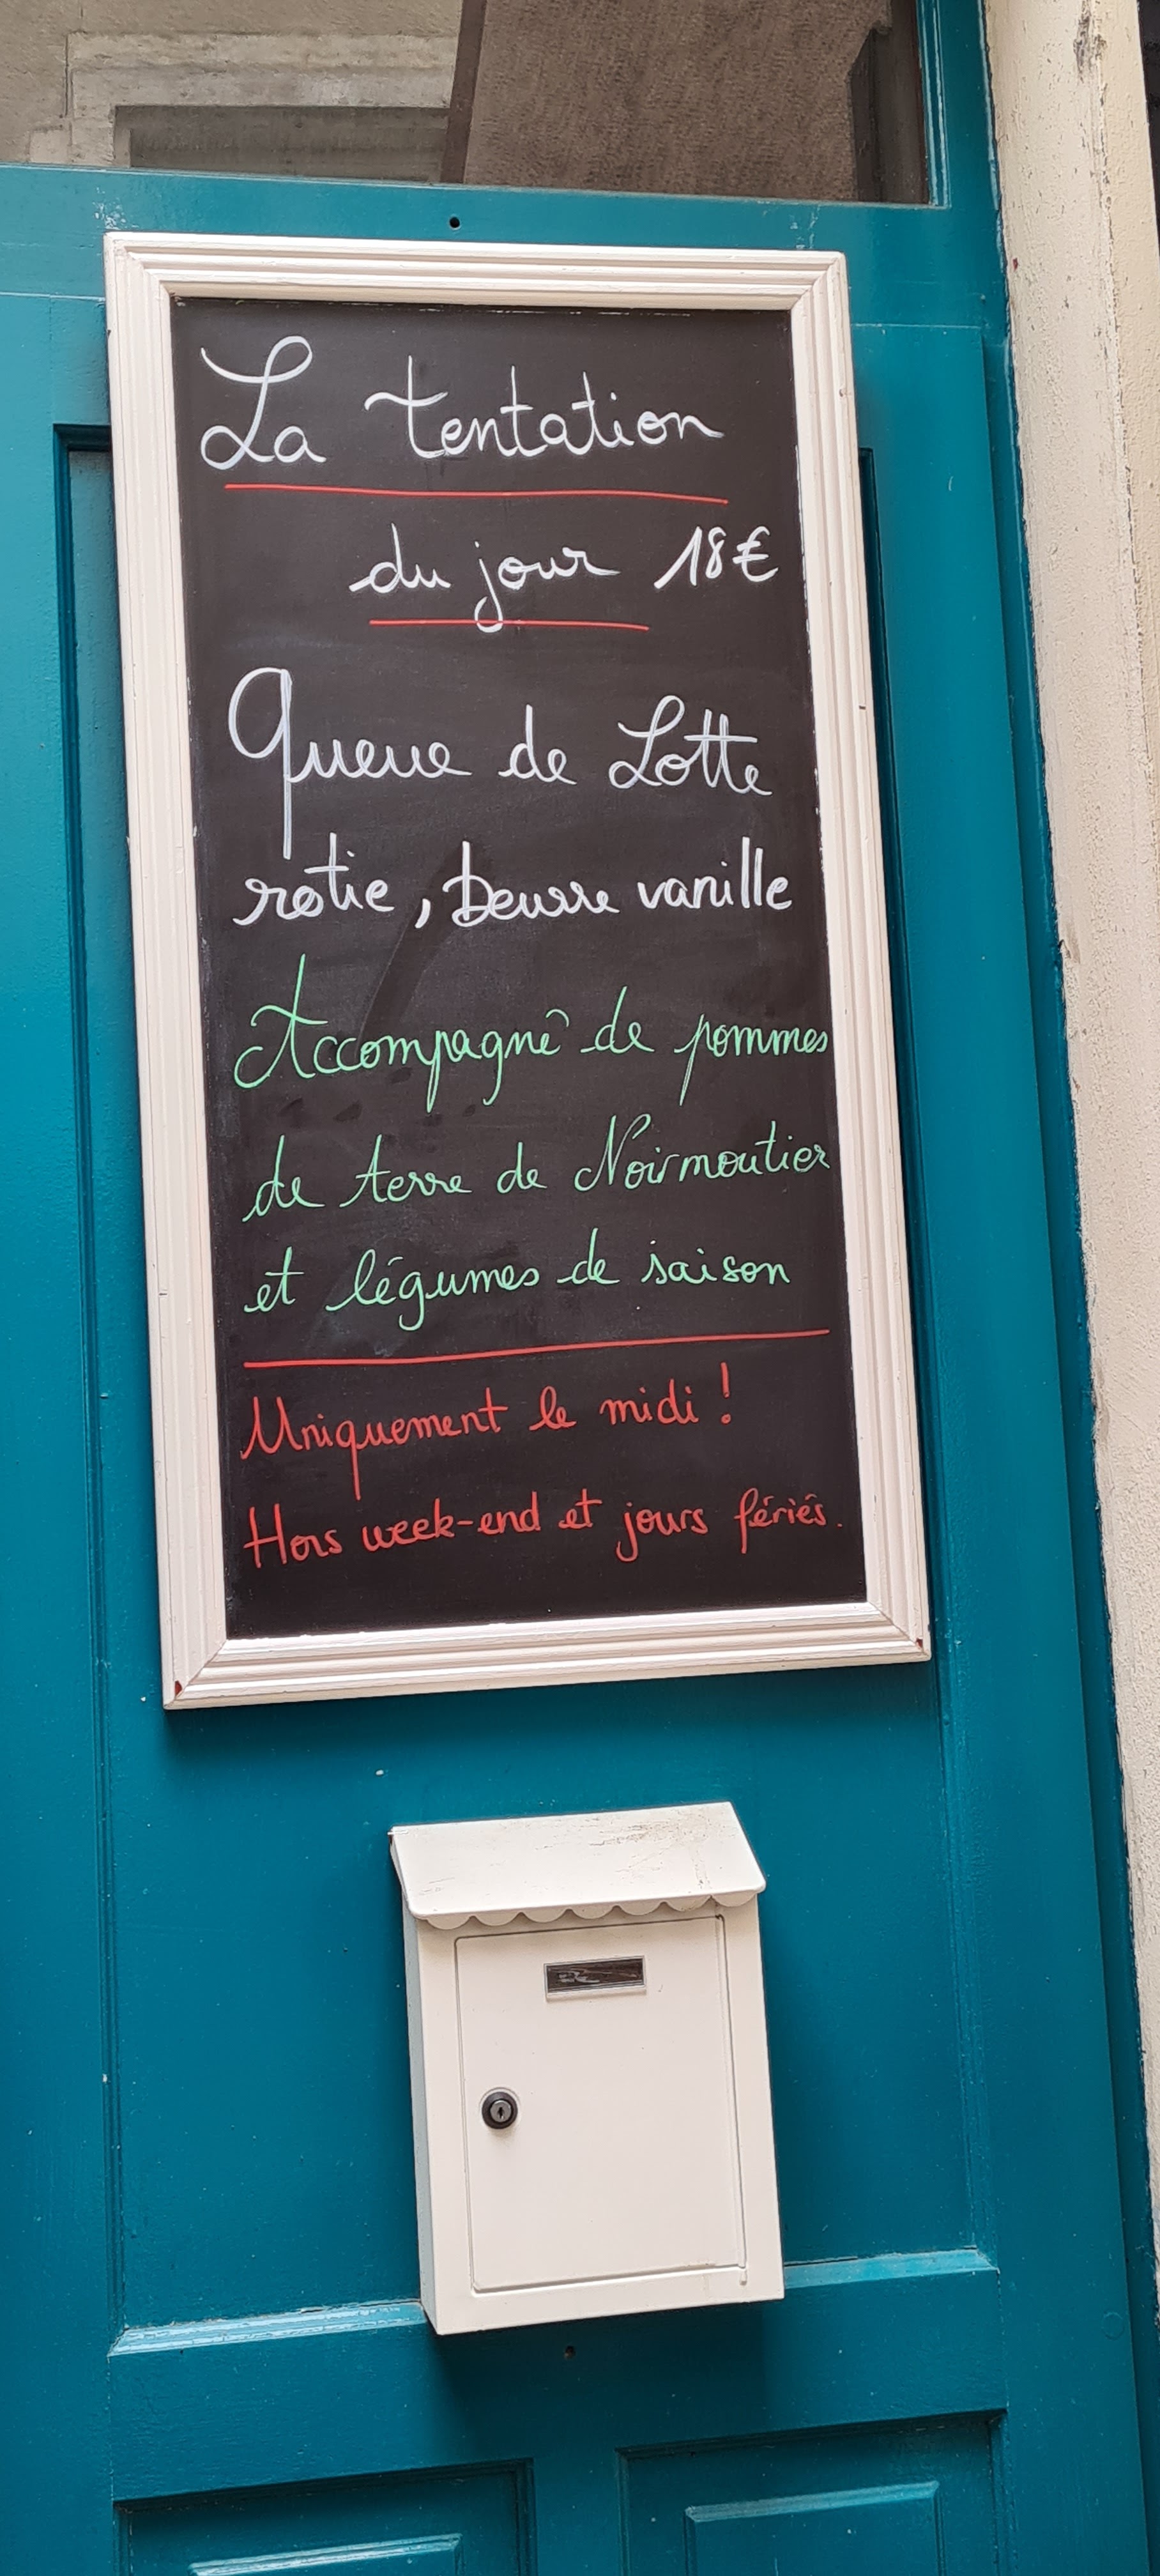 La tentation
du jour 18€
Queue de Lotte
rotie, beurre vanille
Accompagné de pommes
de terre de Noirmoutier
et légumes de saison
Uniquement le midi !
Hors week-end et jours fériés.